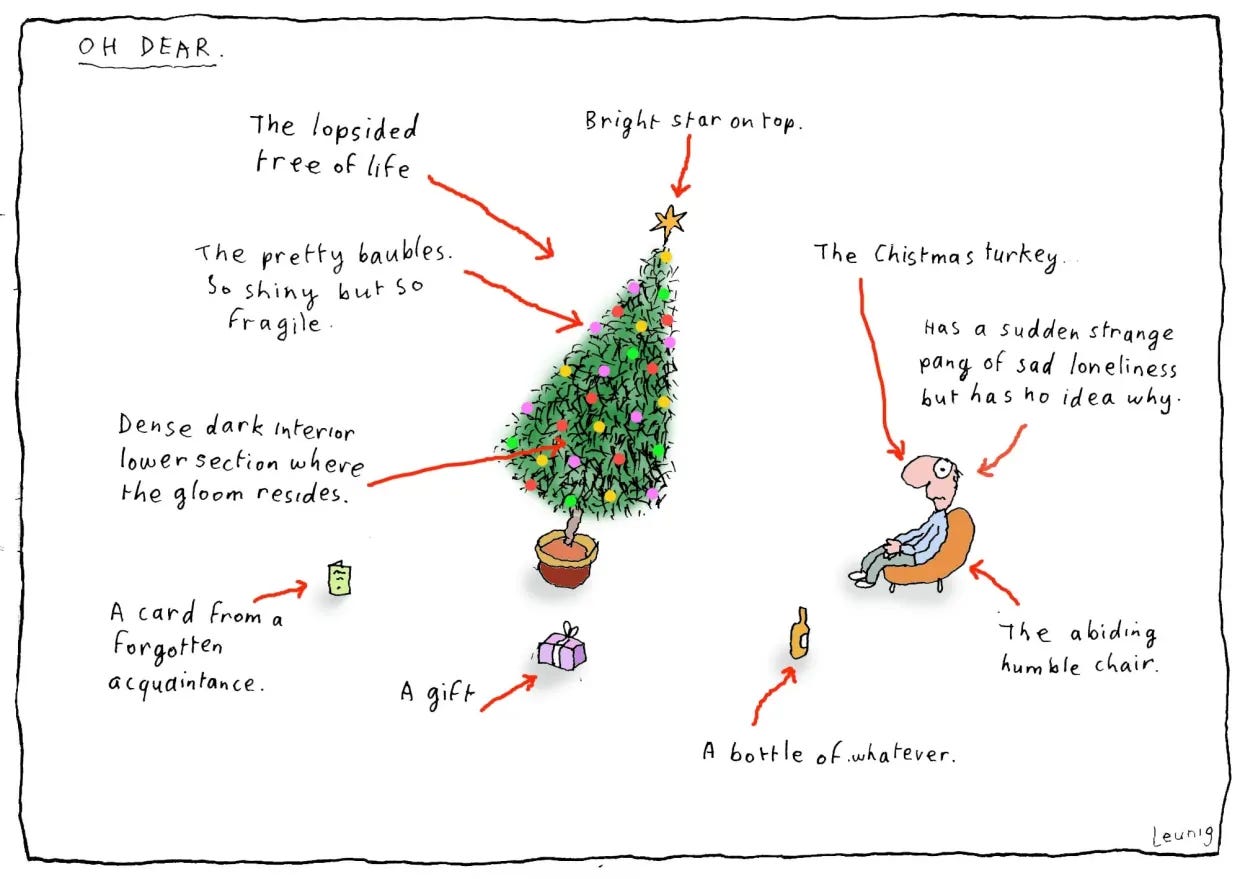 OH DEAR.
The lopsided
tree of life
Bright star on top.
The pretty baubles.
So shiny but so
fragile.
The Chistmas turkey.
Has a sudden strange
pang of sad loneliness
but has no idea why.
Dense dark interior
lower section where
the gloom resides.
A card from a
forgotten
acquaintance.
A gift
The abiding
humble chair.
A bottle of whatever.
Leunig